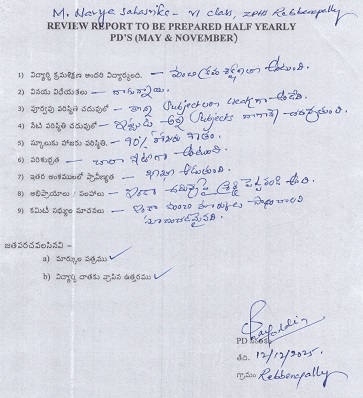 M. Navya Sahasrika - VI class, ZPHS Rebbenapally
REVIEW REPORT TO BE PREPARED HALF YEARLY
PD'S (MAY & NOVEMBER)
1) విద్యార్థి క్రమశిక్షణ అందరి విద్యార్థులలో. - మంచి క్రమశిక్షణగా ఉంటుంది.
2) వినయ విధేయతలు - బాగున్నాయి.
3) పూర్వపు పరిస్థితి చదువులో - కొన్ని Subject లలో weak గా ఉండేది.
4) నేటి పరిస్థితి చదువులో - ఇప్పుడు అన్ని Subjects బాగానే చదువుతుంది.
5) స్కూలుకు హాజరు పరిస్థితి. - 90% హాజరు శాతం.
6) పరిశుభ్రత - చాలా నీటుగా ఉంటుంది
7) ఇతర అంశములలో ప్రావీణ్యత - బాగా ఆడుతుంది.
8) అభిప్రాయాలు / సలహాలు - ఇంకా చదువుపై శ్రద్ధ పెట్టవలసి ఉంది.
9) కమిటీ సభ్యుల సూచనలు - ఇంకా మంచి మార్కులు సాధించాలి
జతపరచవలసినవి -
a) మార్కుల పత్రము ✓
b) విద్యార్థి దాతకు వ్రాసిన ఉత్తరము ✓
PD సంతకం
తేది. 12/12/2025.
గ్రామం Rebbenapally